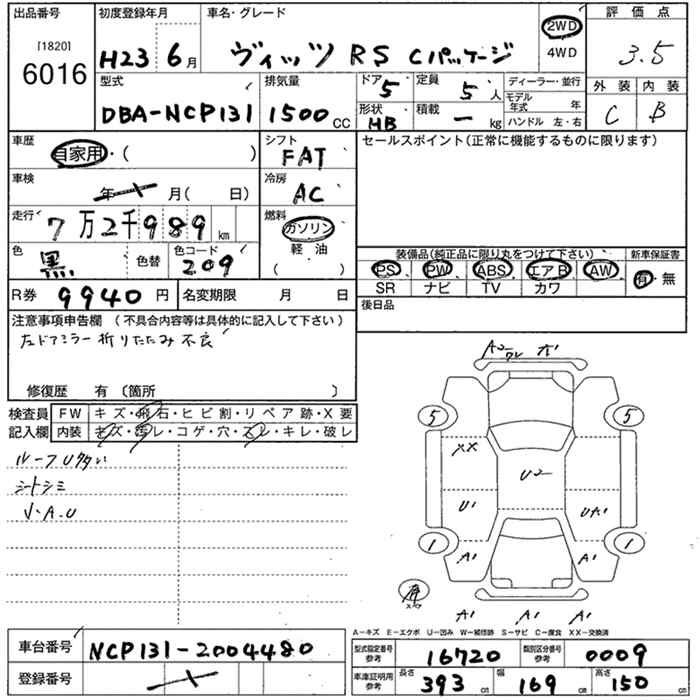 出品番号 初度登録年月 車名・グレード 評価点
[1820]
6016 H23 6月 ヴィッツ RS Cパッケージ 2WD 4WD 3.5
型式 排気量 ドア 5 定員 5人 ディーラー・並行 外装 内装
DBA-NCP131 1500 CC 形状 HB 積載 ー kg モデル年式 年 ハンドル 左・右 C B
車歴 シフト セールスポイント(正常に機能するものに限ります)
自家用・( ) FAT
車検 年 月( 日) 冷房 AC
走行 7万2千989 km 燃料 ガソリン 軽・油 ( )
色 黒 色替 色コード 209
装備品(純正品に限り丸をつけて下さい) 新車保証書
PS PW ABS エアB AW 有・無
SR ナビ TV カワ
R券 9940円 名変期限 月 日 後日品
注意事項申告欄 (不具合内容等は具体的に記入して下さい)
左ドアミラー折りたたみ不良
修復歴 有 〔箇所 〕
検査員 FW キズ・飛石・ヒビ割・リペア跡・X要
記入欄 内装 キズ・汚レ・コゲ・穴・スレ・キレ・破レ
ルーフU多い
シートシミ
小A.U
A2 ワレ A1
5 5
XX
U2
U1 UA1
1 1
A1 A1
A1 A1 A1
A-キズ E-エクボ U-凹み W-補修跡 S-サビ C-腐食 XX-交換済
車台番号 NCP131-2004480 型式指定番号 参考 16720 類別区分番号 参考 0009
登録番号 車庫証明用 参考 長さ 393 cm 幅 169 cm 高さ 150 cm